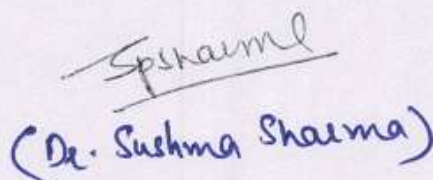 Spsharma
(Dr. Sushma Sharma)